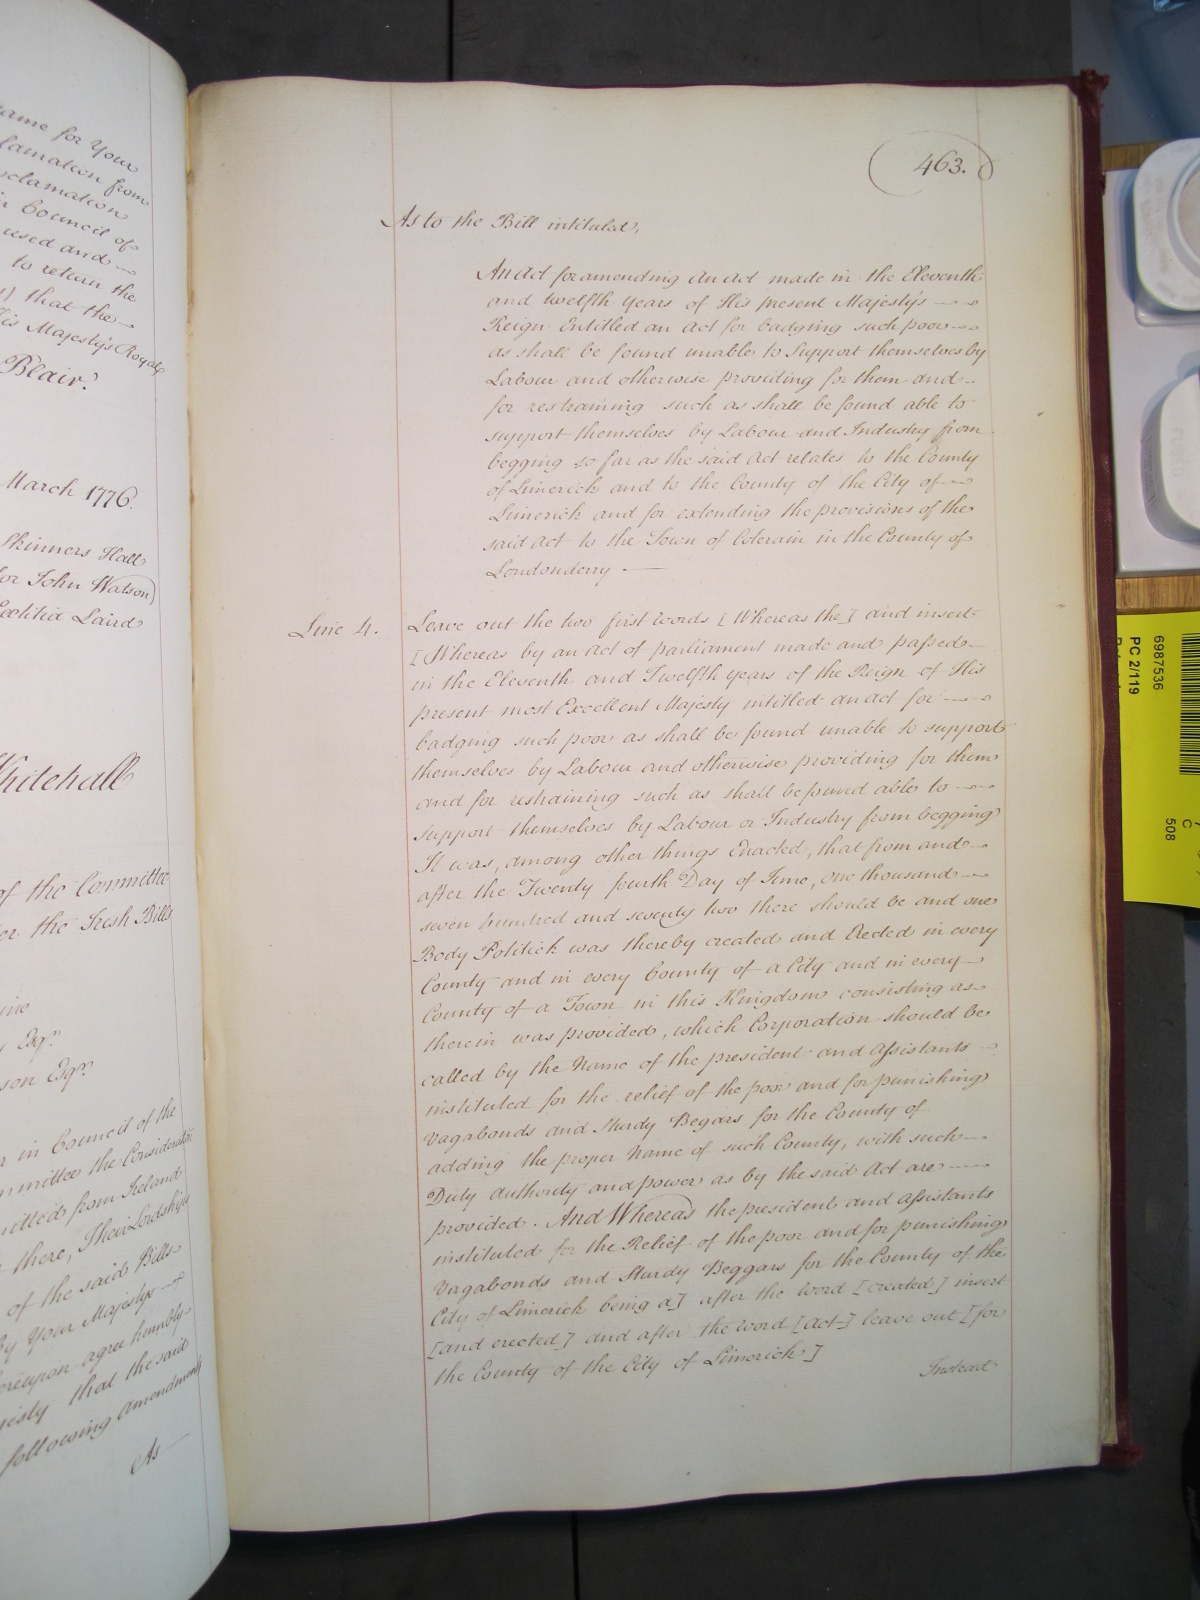 ame for Your
lamation from
oclamation
Council of
used and
to return the
) that the
is Majesty's Royal
Blair.
March 1776.
Skinners Hall
or John Watson)
Lætitia Laird
Whitehall
of the Committee
or the Irish Bills
Esqr.
son Esqr.
in Council of the
mmittee the Consideration
mitted from Ireland
there, Their Lordships
of the said Bills
by Your Majesty's
ereupon agree humbly
jesty that the said
following amendments
As
463.
As to the Bill intituled,
An Act for amending an Act made in the Eleventh
and twelfth years of His present Majesty's
Reign Entitled an Act for badging such poor
as shall be found unable to Support themselves by
Labour and otherwise providing for them and
for restraining such as shall be found able to
support themselves by Labour and Industry from
begging so far as the said Act relates to the County
of Limerick and to the County of the City of
Limerick and for extending the provisions of the
said Act to the Town of Colerain in the County of
Londonderry —
Line 4. Leave out the two first words [Whereas the] and insert
[Whereas by an Act of parliament made and passed
in the Eleventh and Twelfth years of the Reign of His
present most Excellent Majesty intitled an Act for
badging such poor as shall be found unable to support
themselves by Labour and otherwise providing for them
and for restraining such as shall be found able to
support themselves by Labour or Industry from begging
It was, among other things Enacted, that from and
after the Twenty fourth Day of June, one thousand
seven hundred and seventy two there should be and one
Body Politick was thereby created and Erected in every
County and in every County of a City and in every
County of a Town in this Kingdom consisting as
therein was provided, which Corporation should be
called by the Name of the president and assistants
instituted for the relief of the poor and for punishing
vagabonds and sturdy Begars for the County of
adding the proper Name of such County, with such
Duty authority and power as by the said Act are
provided. And Whereas the president and assistants
instituted for the Relief of the poor and for punishing
Vagabonds and Sturdy Beggars for the County of the
City of Limerick being a] after the word [created] insert
[and erected] and after the word [Act] leave out [for
the County of the City of Limerick]
Instead
6987536
PC 2/119
C
508